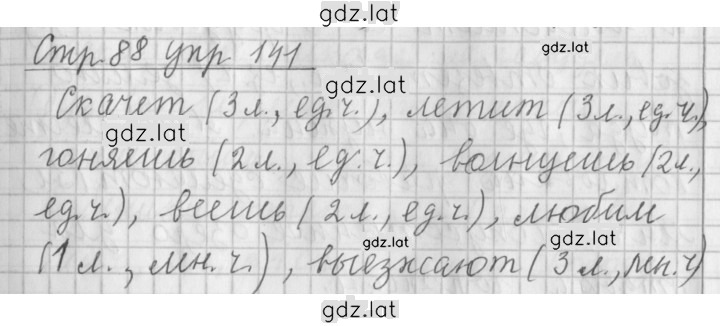 gdz.lat
Стр. 88 упр 141
gdz.lat
gdz.lat
Скачет (3 л., ед.ч.), летит (3 л., ед.ч.),
gdz.lat
gdz.lat
гоняешь (2 л., ед.ч.), волнуешь (2 л.,
ед.ч.), веешь (2 л., ед.ч.), любим
gdz.lat
gdz.lat
(1 л., мн.ч.), выезжают (3 л., мн.ч)
gdz.lat